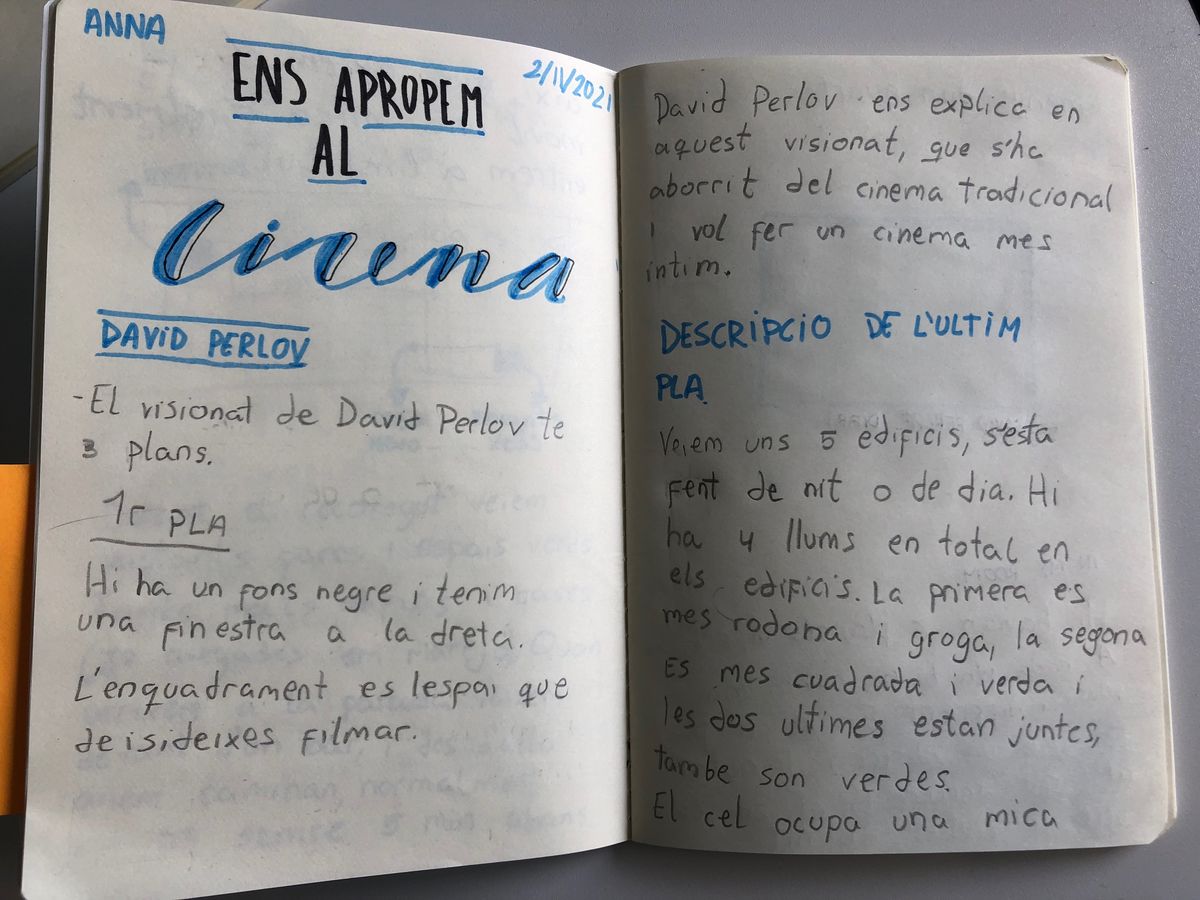 ANNA
2/11/2021
ENS APROPEM
AL
cinema
DAVID PERLOV
-El visionat de David Perlov te
3 plans.
1r PLA
Hi ha un fons negre i tenim
una finestra a la dreta.
L'enquadrament es lespai que
deisideixes filmar.
David Perlov ens explica en
aquest visionat, que s'ha
aborrit del cinema tradicional
i vol fer un cinema mes
intim.
DESCRIPCIO DE L'ULTIM
PLA
Veiem uns 5 edificis, s'esta
fent de nit o de dia. Hi
ha 4 llums en total en
els edificis. La primera es
mes rodona i groga, la segona
Es mes cuadrada i verda i
les dos ultimes estan juntes,
tambe son verdes.
El cel ocupa una mica